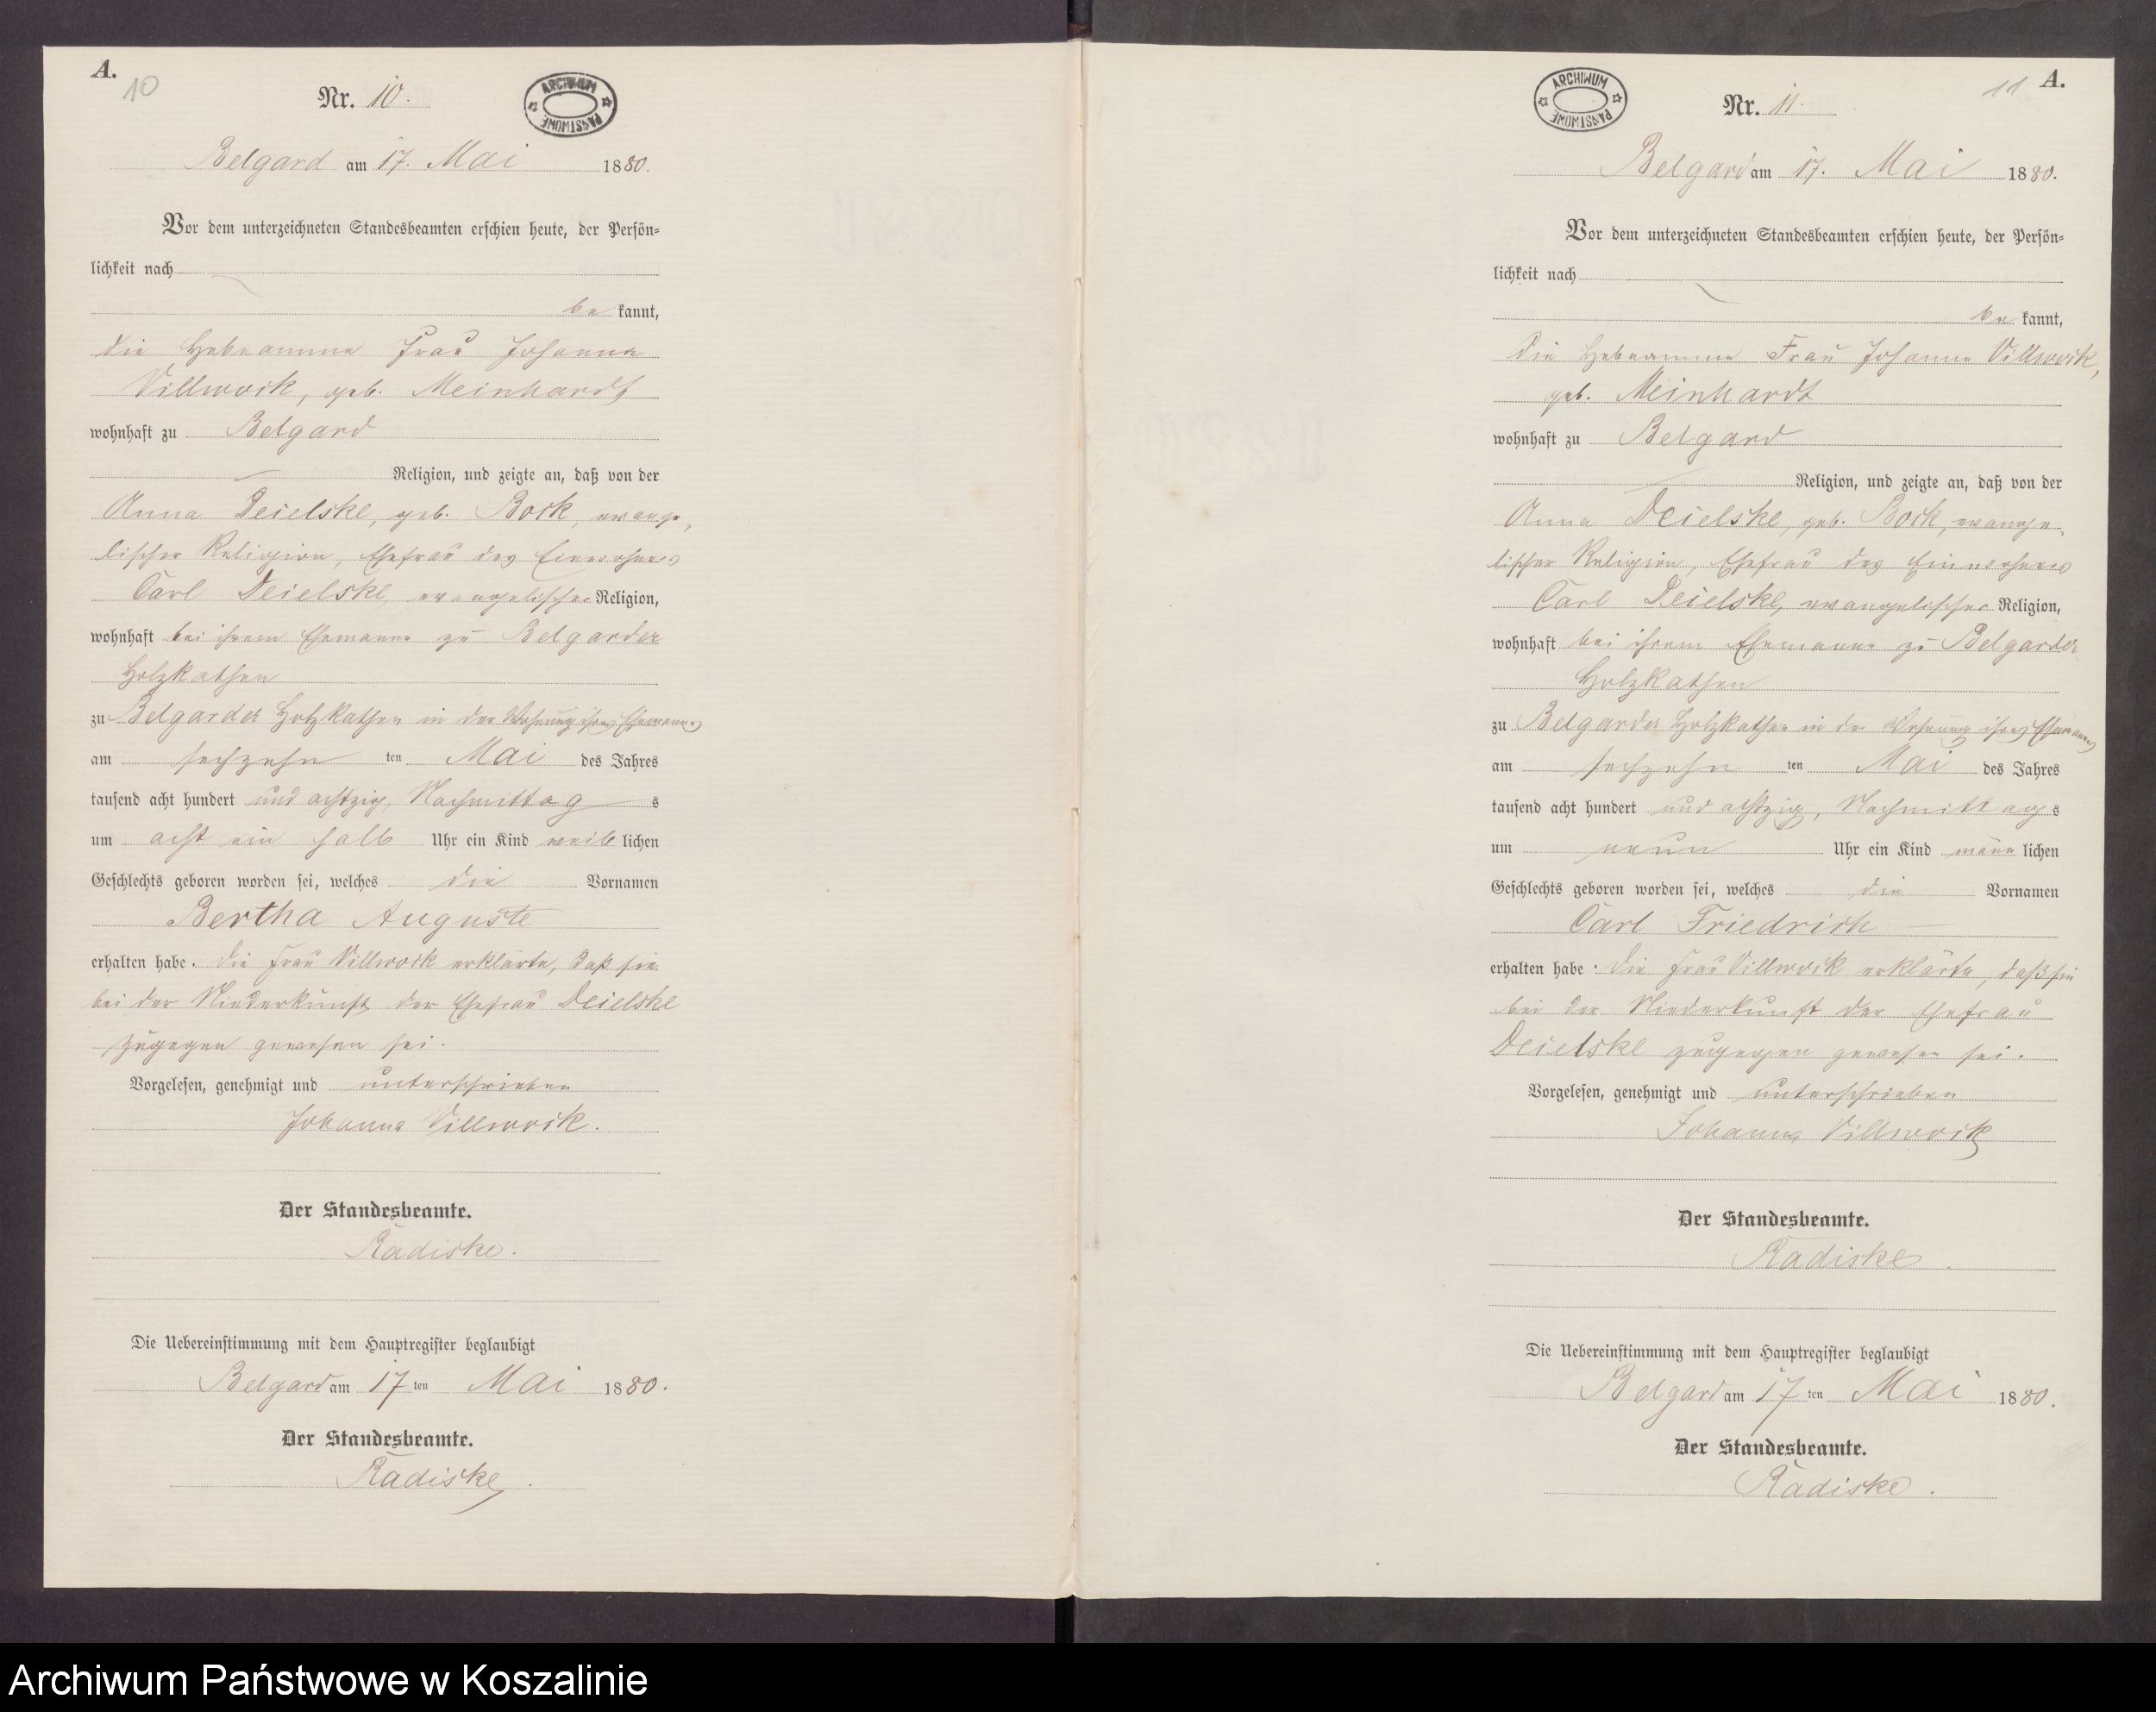 A.
10
Nr. 10.
ARCHIWUM PAŃSTWOWE
Belgard am 17. Mai 1880.
Vor dem unterzeichneten Standesbeamten erschien heute, der Persön-
lichkeit nach
be kannt,
die Hebeamme Frau Johanna
Villwock, geb. Meinhardt
wohnhaft zu Belgard
Religion, und zeigte an, daß von der
Anna Deielske, geb. Bock, evange-
lischer Religion, Ehefrau des Einwohners
Carl Deielske, evangelischer Religion,
wohnhaft bei ihrem Ehemanne zu Belgarder
Holzkathen
zu Belgarder Holzkathen in der Wohnung ihres Ehemannes
am sechzehn ten Mai des Jahres
tausend acht hundert und achtzig, Nachmittag s
um acht ein halb Uhr ein Kind weib lichen
Geschlechts geboren worden sei, welches die Vornamen
Bertha Auguste
erhalten habe. Die Frau Villwock erklärte, daß sie
bei der Niederkunft der Ehefrau Deielske
zugegen gewesen sei.
Vorgelesen, genehmigt und unterschrieben
Johanna Villwock.
Der Standesbeamte.
Radiske.
Die Uebereinstimmung mit dem Hauptregister beglaubigt
Belgard am 17 ten Mai 1880.
Der Standesbeamte.
Radiske.
11
A.
ARCHIWUM PAŃSTWOWE
Nr. 11.
Belgard am 17. Mai 1880.
Vor dem unterzeichneten Standesbeamten erschien heute, der Persön-
lichkeit nach
be kannt,
die Hebeamme Frau Johanna Villwock,
geb. Meinhardt
wohnhaft zu Belgard
Religion, und zeigte an, daß von der
Anna Deielske, geb. Bock, evange-
lischer Religion, Ehefrau des Einwohners
Carl Deielske, evangelischer Religion,
wohnhaft bei ihrem Ehemanne zu Belgarder
Holzkathen
zu Belgarder Holzkathen in der Wohnung ihres Ehemannes
am sechzehn ten Mai des Jahres
tausend acht hundert und achtzig, Nachmittag s
um neun Uhr ein Kind männ lichen
Geschlechts geboren worden sei, welches die Vornamen
Carl Friedrich
erhalten habe. Die Frau Villwock erklärte, daß sie
bei der Niederkunft der Ehefrau
Deielske zugegen gewesen sei.
Vorgelesen, genehmigt und unterschrieben
Johanna Villwock
Der Standesbeamte.
Radiske.
Die Uebereinstimmung mit dem Hauptregister beglaubigt
Belgard am 17 ten Mai 1880.
Der Standesbeamte.
Radiske.
Archiwum Państwowe w Koszalinie